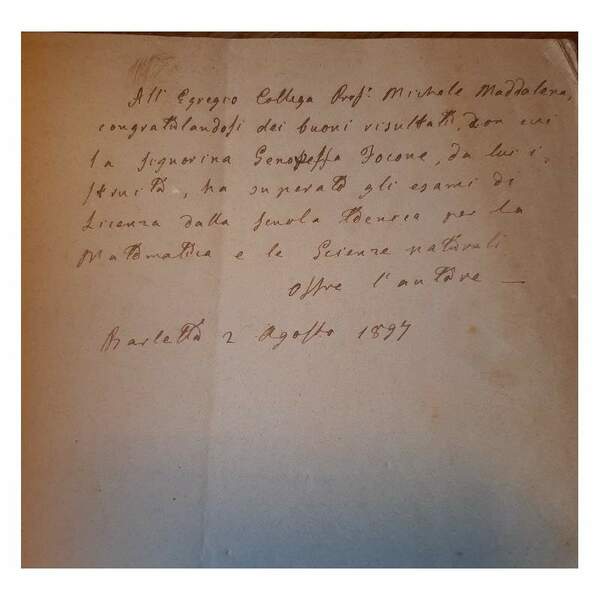 All' Egregio Collega Prof. Michele Maddalena,
congratulandosi dei buoni risultati, con cui
la signorina Genoveffa Focone, da lui i
struita, ha superato gli esami di
Licenza dalla Scuola tecnica per la
Matematica e le Scienze naturali
Offre l'autore —
Barletta 2 Agosto 1897